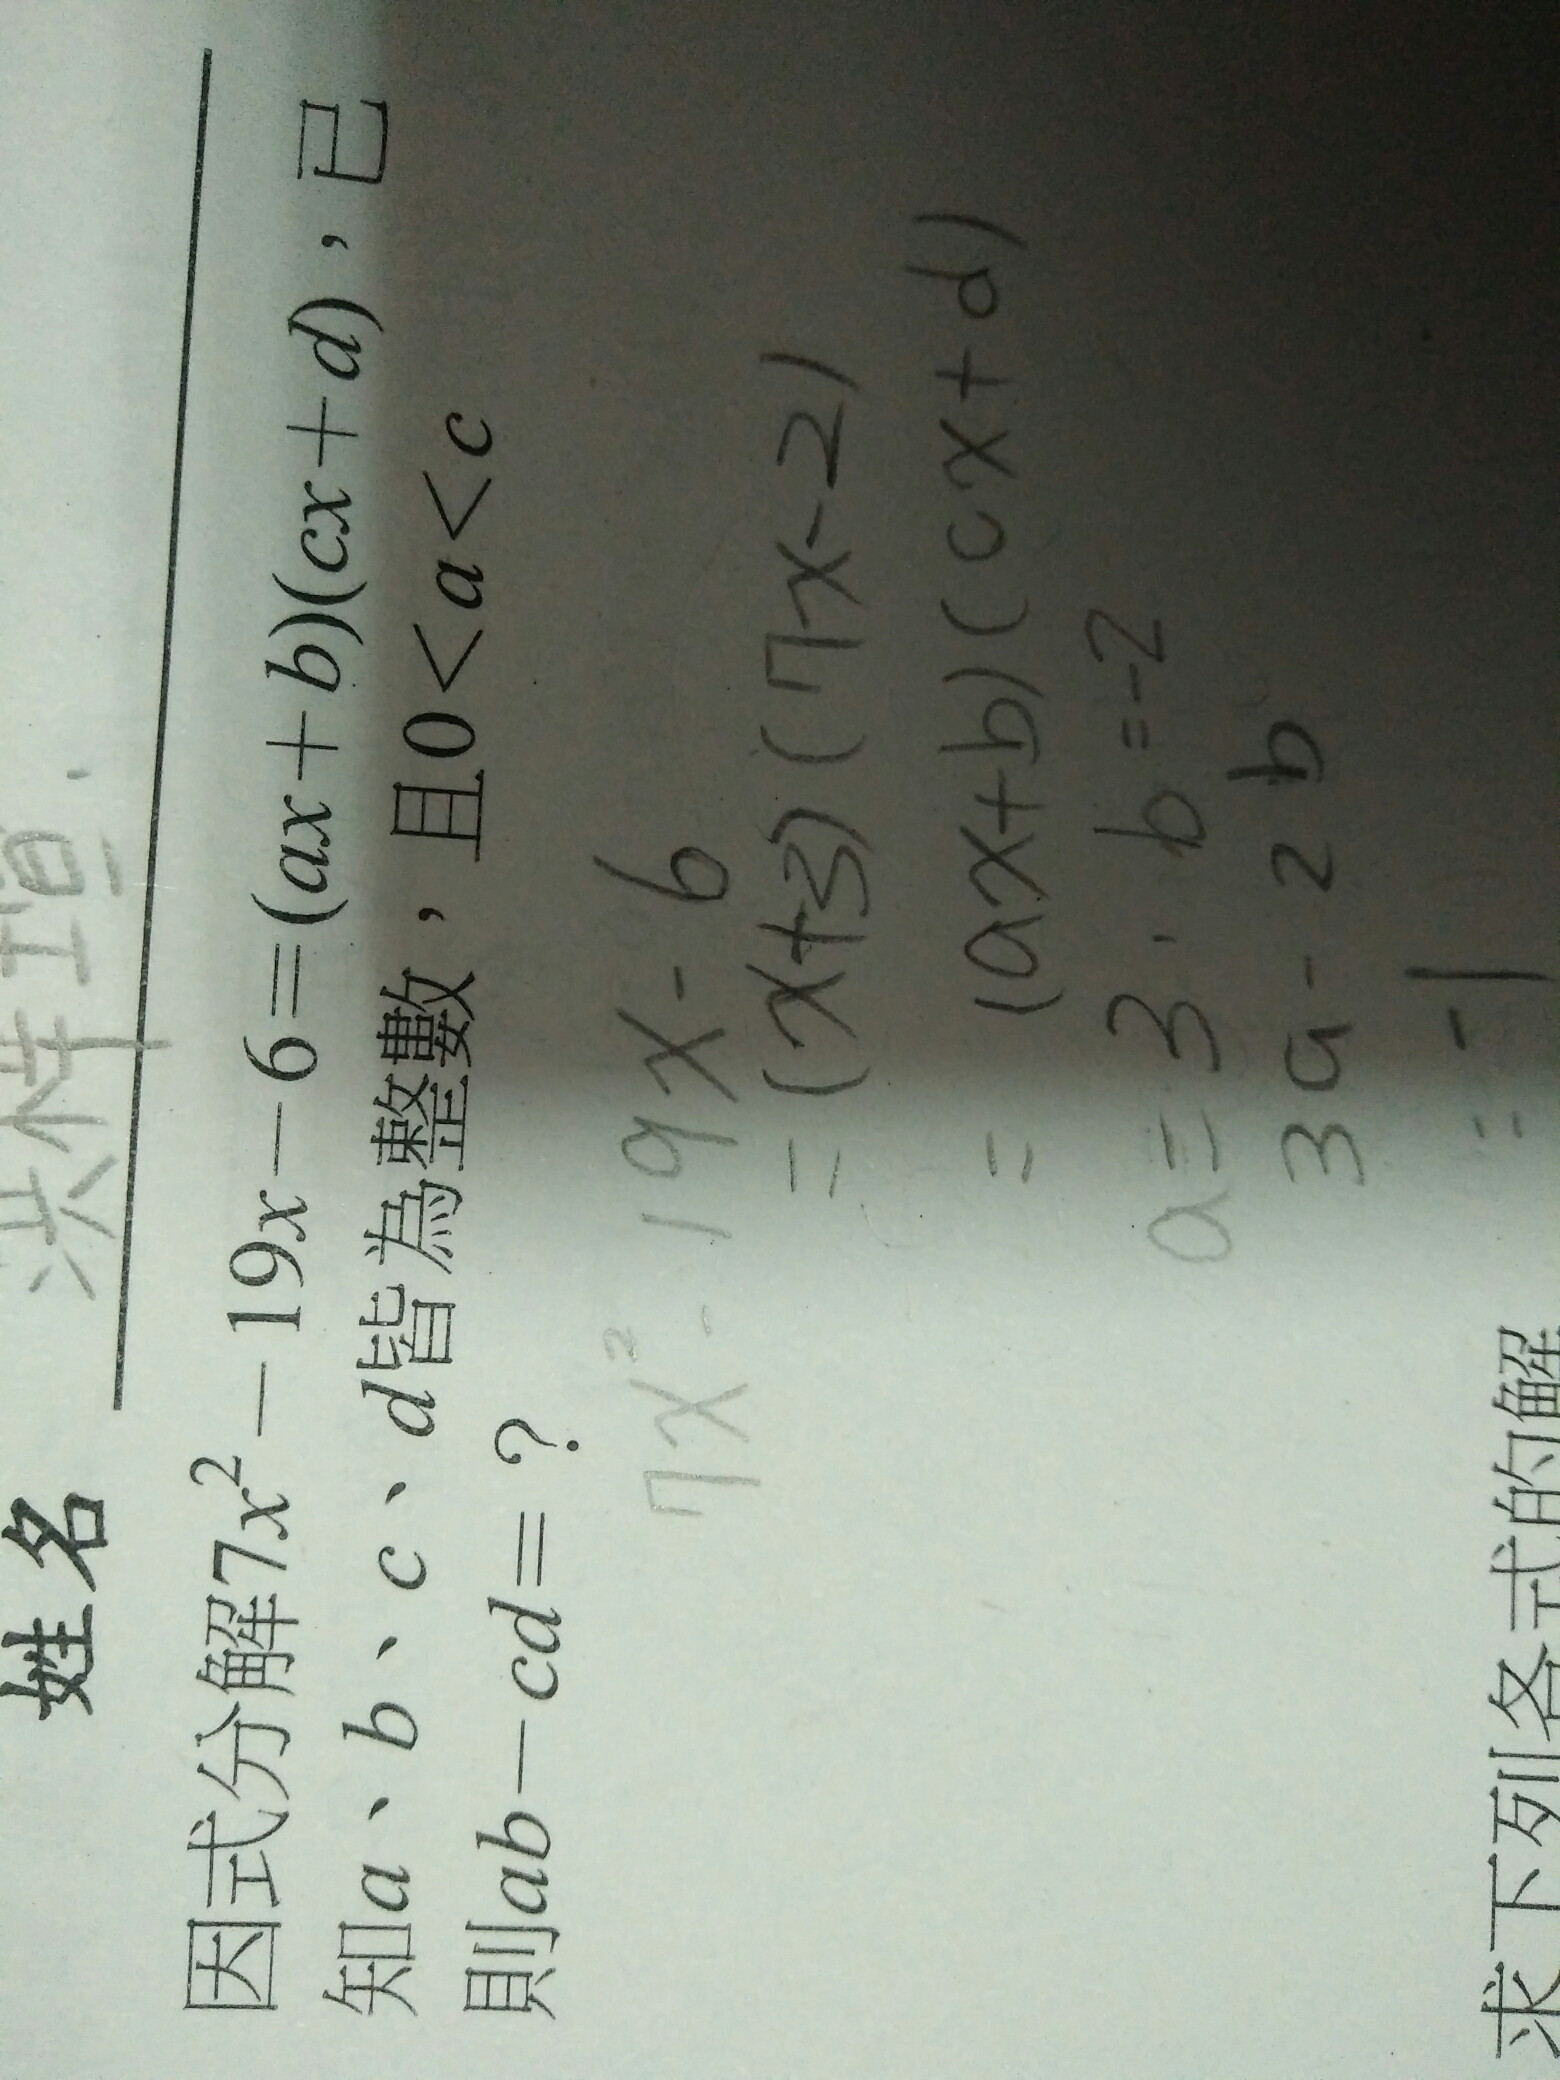 姓名 洪梓瑄
因式分解7x²－19x－6＝(ax＋b)(cx＋d)，已
知a、b、c、d皆為整數，且0＜a＜c
則ab－cd＝？
7x²-19x-6
=(x+3)(7x-2)
=(ax+b)(cx+d)
a=3. b=-2
3a-2b
=-1
求下列各式的解